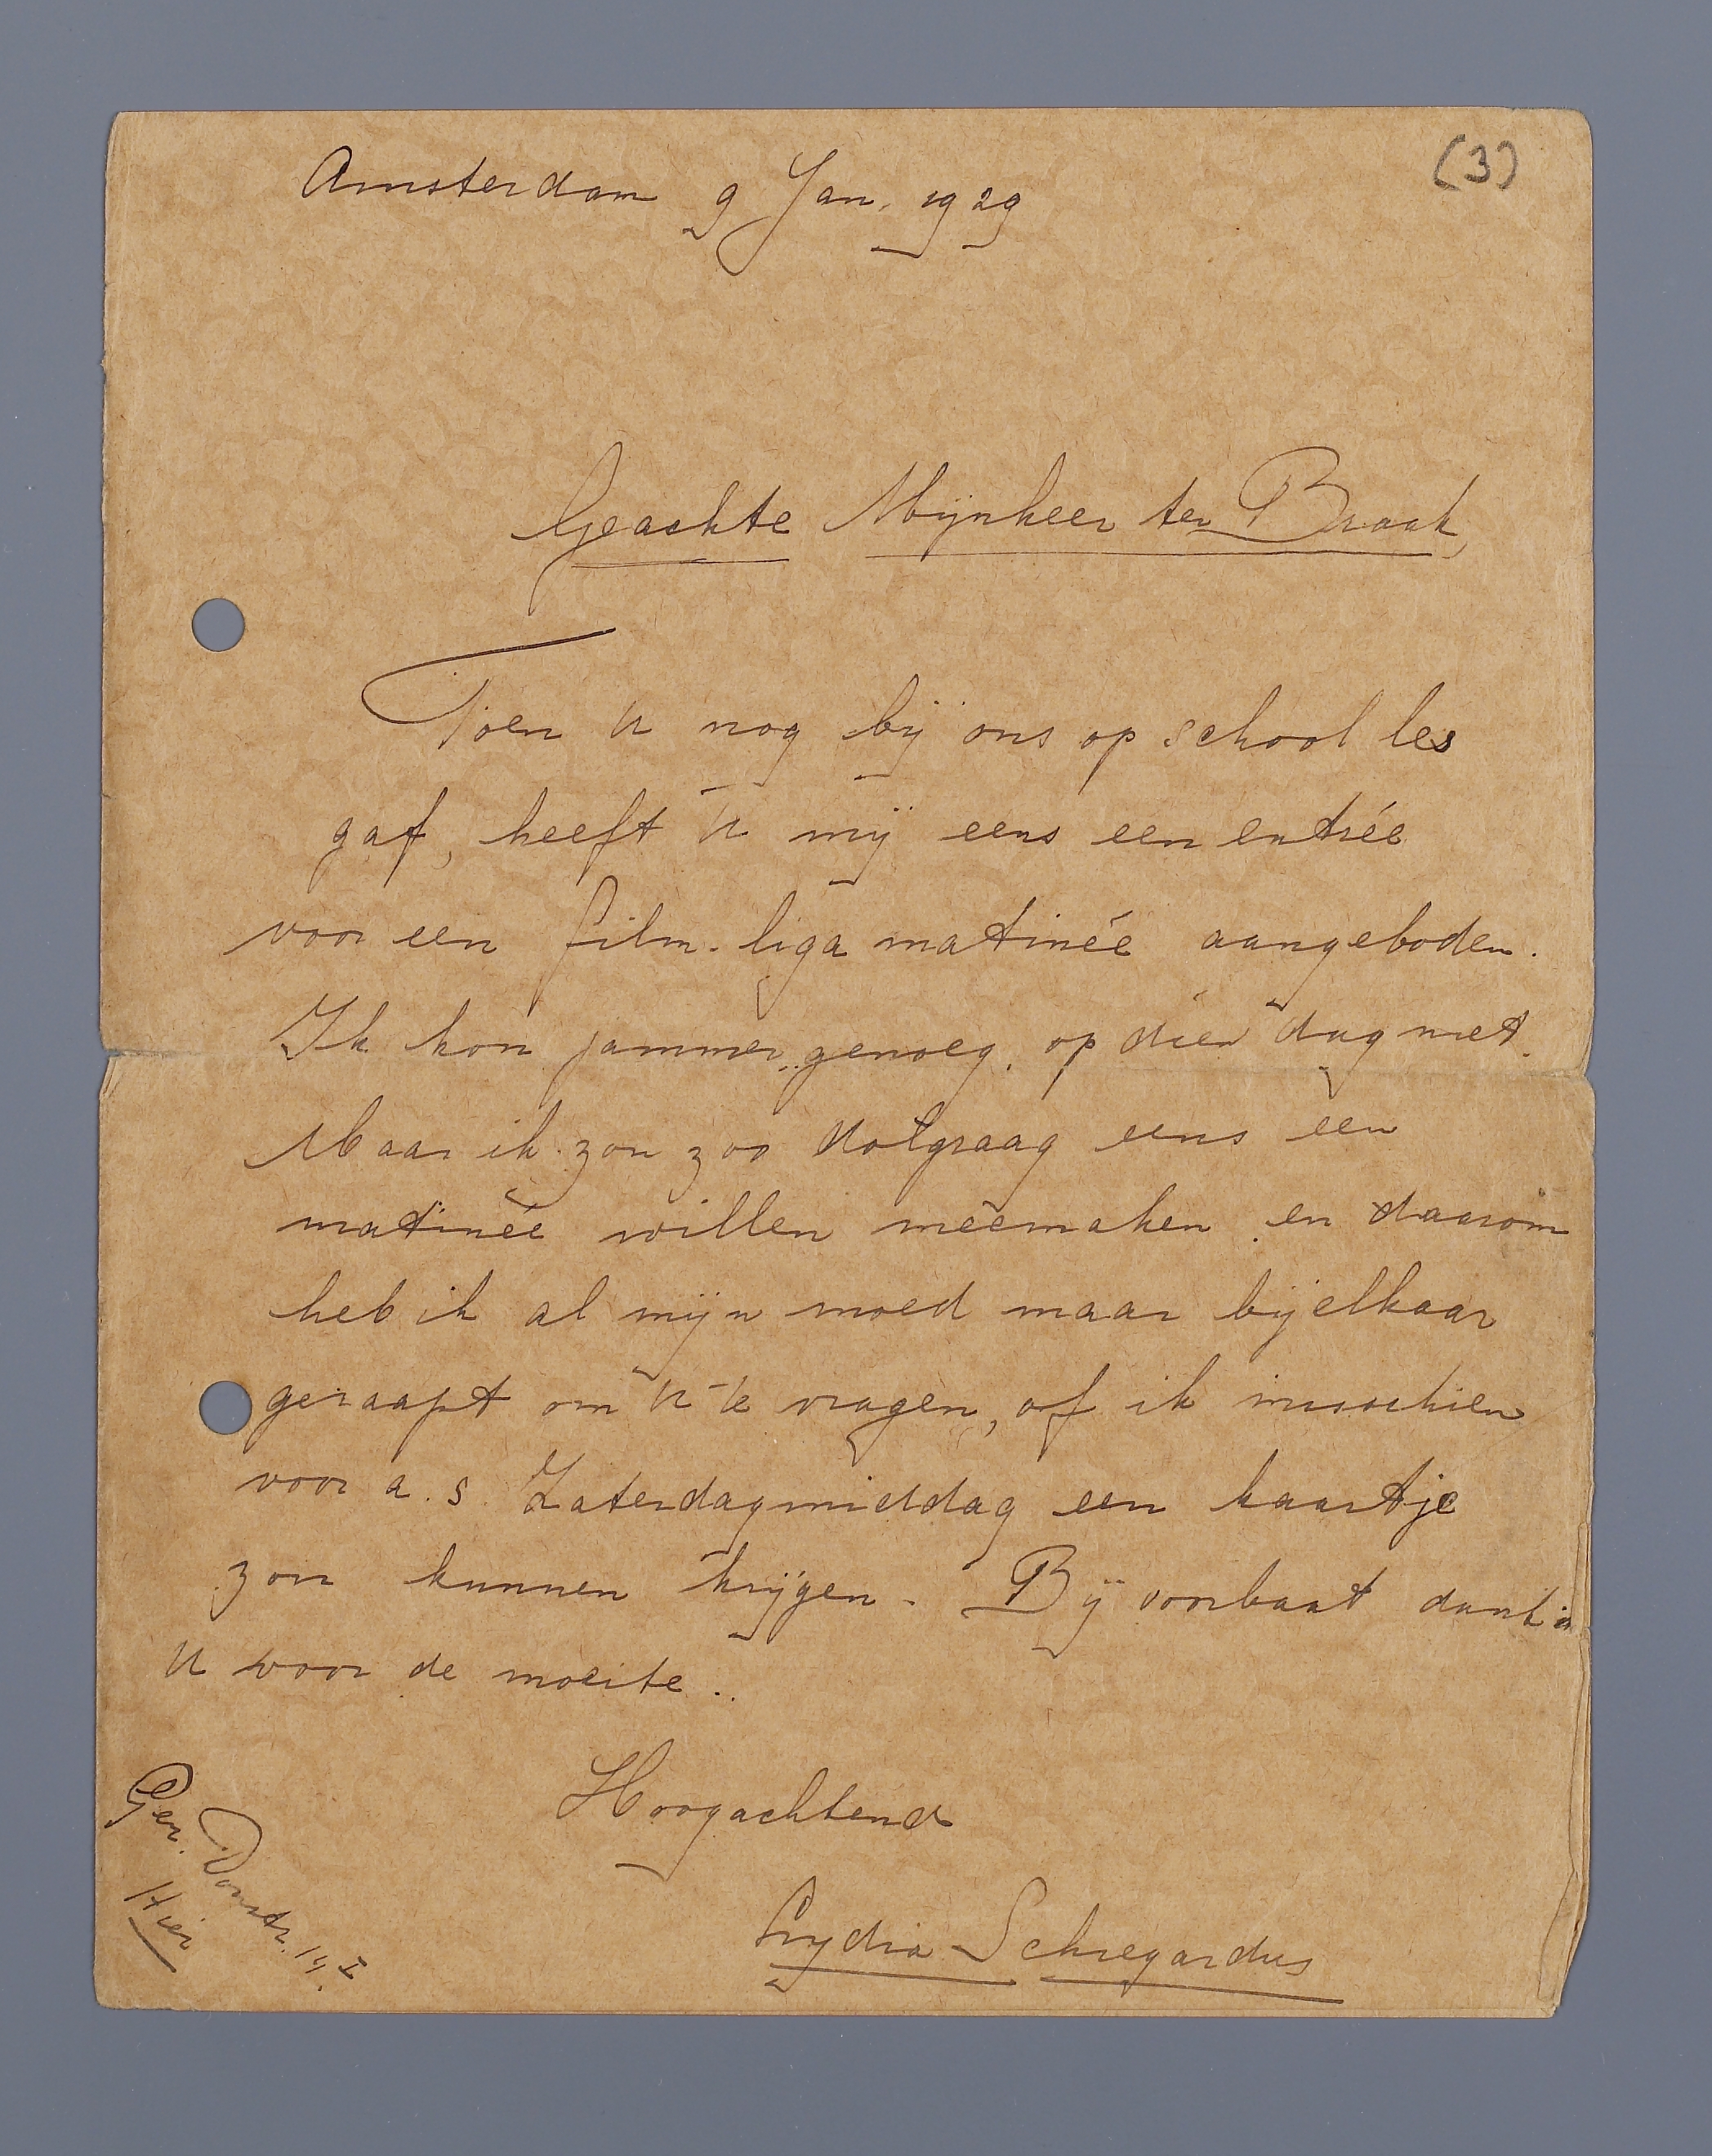 (3)
Amsterdam 9 Jan. 1929
Geachte Mijnheer ter Braak,
Toen U nog bij ons op school les
gaf, heeft U mij eens een entrée
voor een film-liga matinée aangeboden.
Ik kon jammer genoeg op dien dag niet.
Maar ik zou zoo dolgraag eens een
matinée willen meemaken en daarom
heb ik al mijn moed maar bij elkaar
geraapt om U te vragen, of ik misschien
voor a.s. Zaterdagmiddag een kaartje
zou kunnen krijgen. Bij voorbaat dank ik
U voor de moeite..
Hoogachtend
Lydia Schregardus
Ger. Doustr. 14 I
Hier